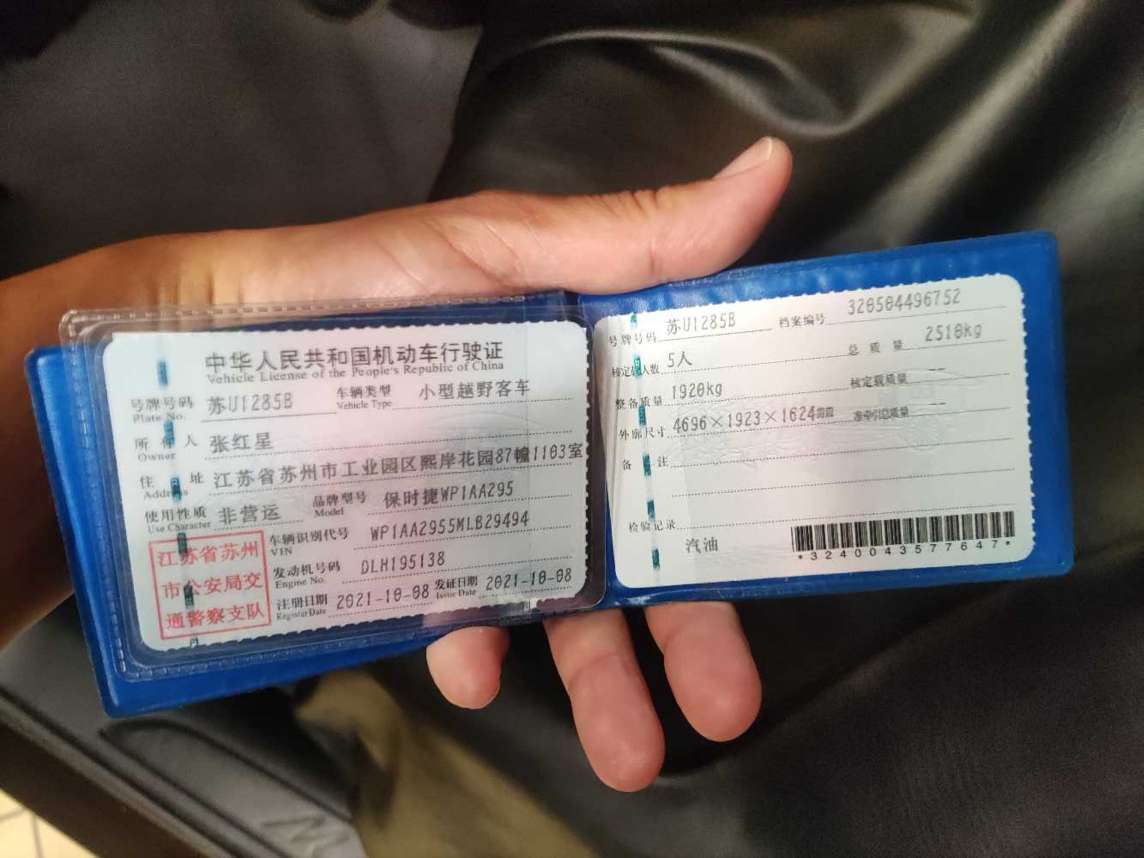 中华人民共和国机动车行驶证
Vehicle License of the People's Republic of China
号牌号码 苏U1285B 车辆类型 小型越野客车
Plate No. Vehicle Type
所有人 张红星
Owner
住址 江苏省苏州市工业园区熙岸花园87幢1103室
Address
使用性质 非营运 品牌型号 保时捷WP1AA295
Use Character Model
江苏省苏州
市公安局交
通警察支队
车辆识别代号 WP1AA2955MLB29494
VIN
发动机号码 DLH195138
Engine No.
注册日期 2021-10-08 发证日期 2021-10-08
Register Date Issue Date
号牌号码 苏U1285B 档案编号 320504496752
核定载人数 5人 总质量 2510kg
整备质量 1920kg 核定载质量 --
外廓尺寸 4696×1923×1624 准牵引总质量 --
备注
检验记录
汽油
*3240043577647*